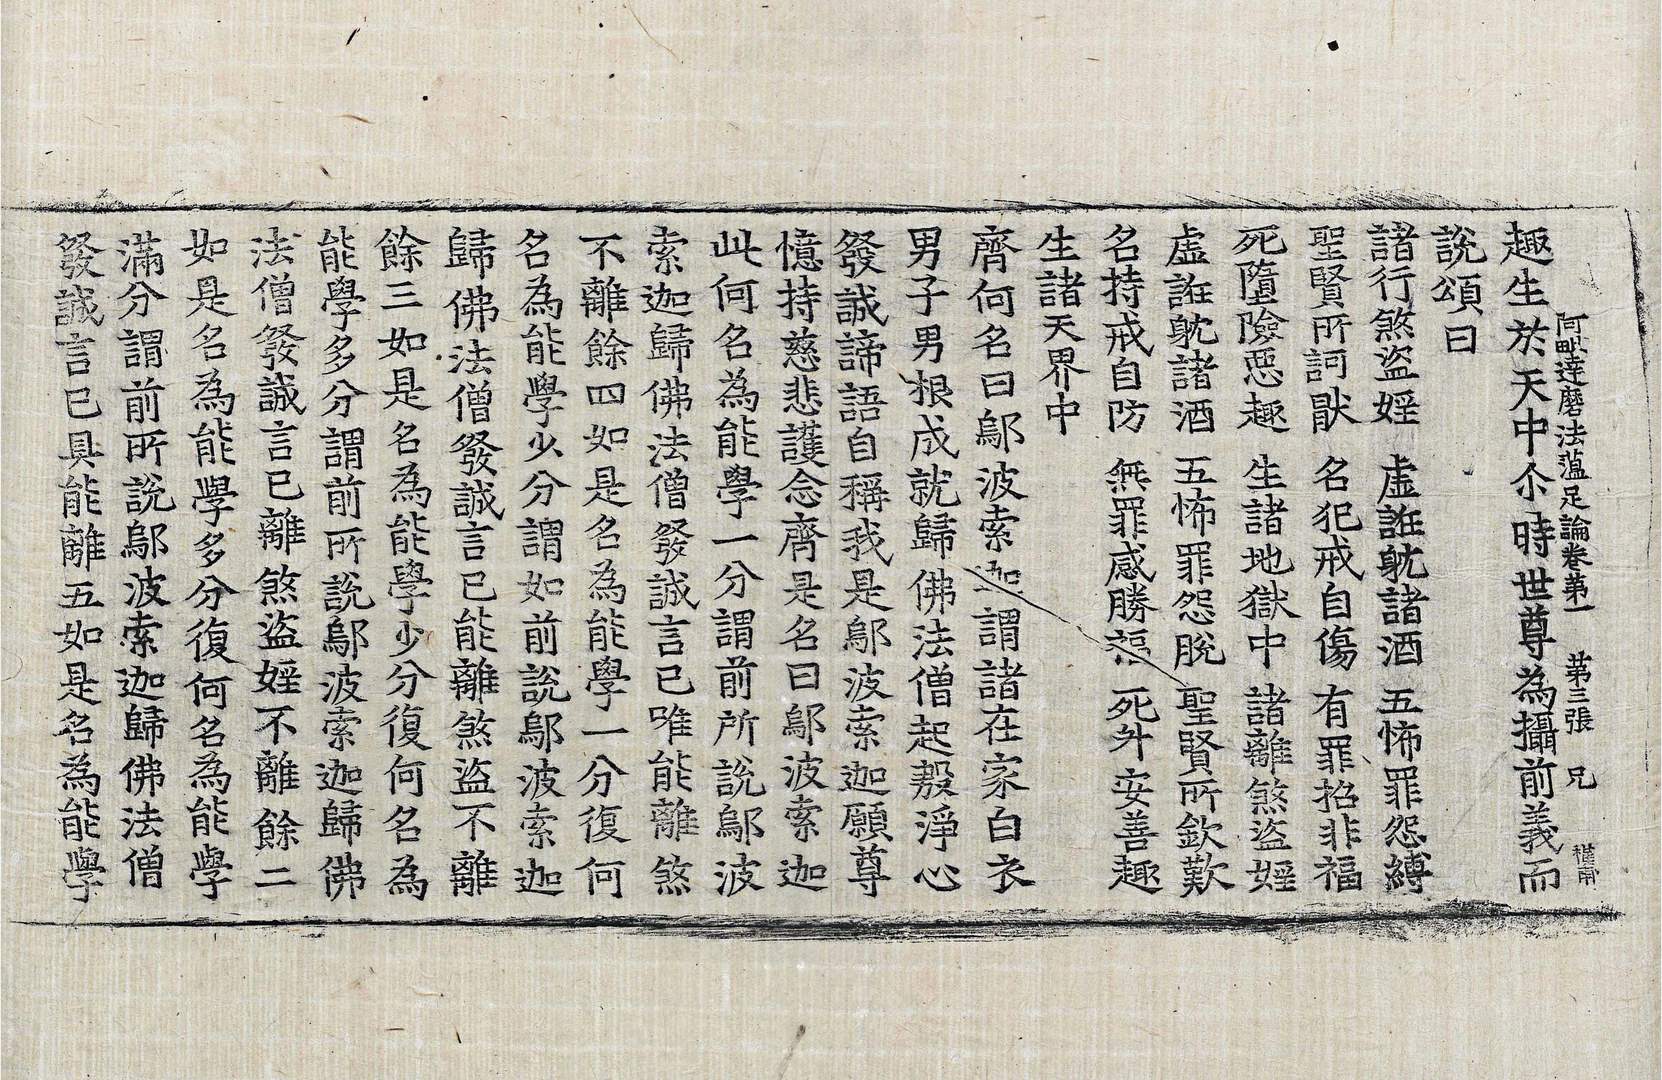 阿毗達磨法蘊足論卷第一　第三張　兄
趣生於天中尒時世尊為攝前義而
說頌曰
諸行煞盜婬　虛誑躭諸酒　五怖罪怨縛
聖賢所訶猒　名犯戒自傷　有罪招非福
死墮險惡趣　生諸地獄中　諸離煞盜婬
虛誑躭諸酒　五怖罪怨脫　聖賢所欽歎
名持戒自防　無罪感勝福　死外安善趣
生諸天界中
齊何名曰鄔波索迦謂諸在家白衣
男子男根成就歸佛法僧起殷淨心
發誠諦語自稱我是鄔波索迦願尊
憶持慈悲護念齊是名曰鄔波索迦
此何名為能學一分謂前所說鄔波
索迦歸佛法僧發誠言已唯能離煞
不離餘四如是名為能學一分復何
名為能學少分謂如前說鄔波索迦
歸佛法僧發誠言已能離煞盜不離
餘三如是名為能學少分復何名為
能學多分謂前所說鄔波索迦歸佛
法僧發誠言已離煞盜婬不離餘二
如是名為能學多分復何名為能學
滿分謂前所說鄔波索迦歸佛法僧
發誠言已具能離五如是名為能學